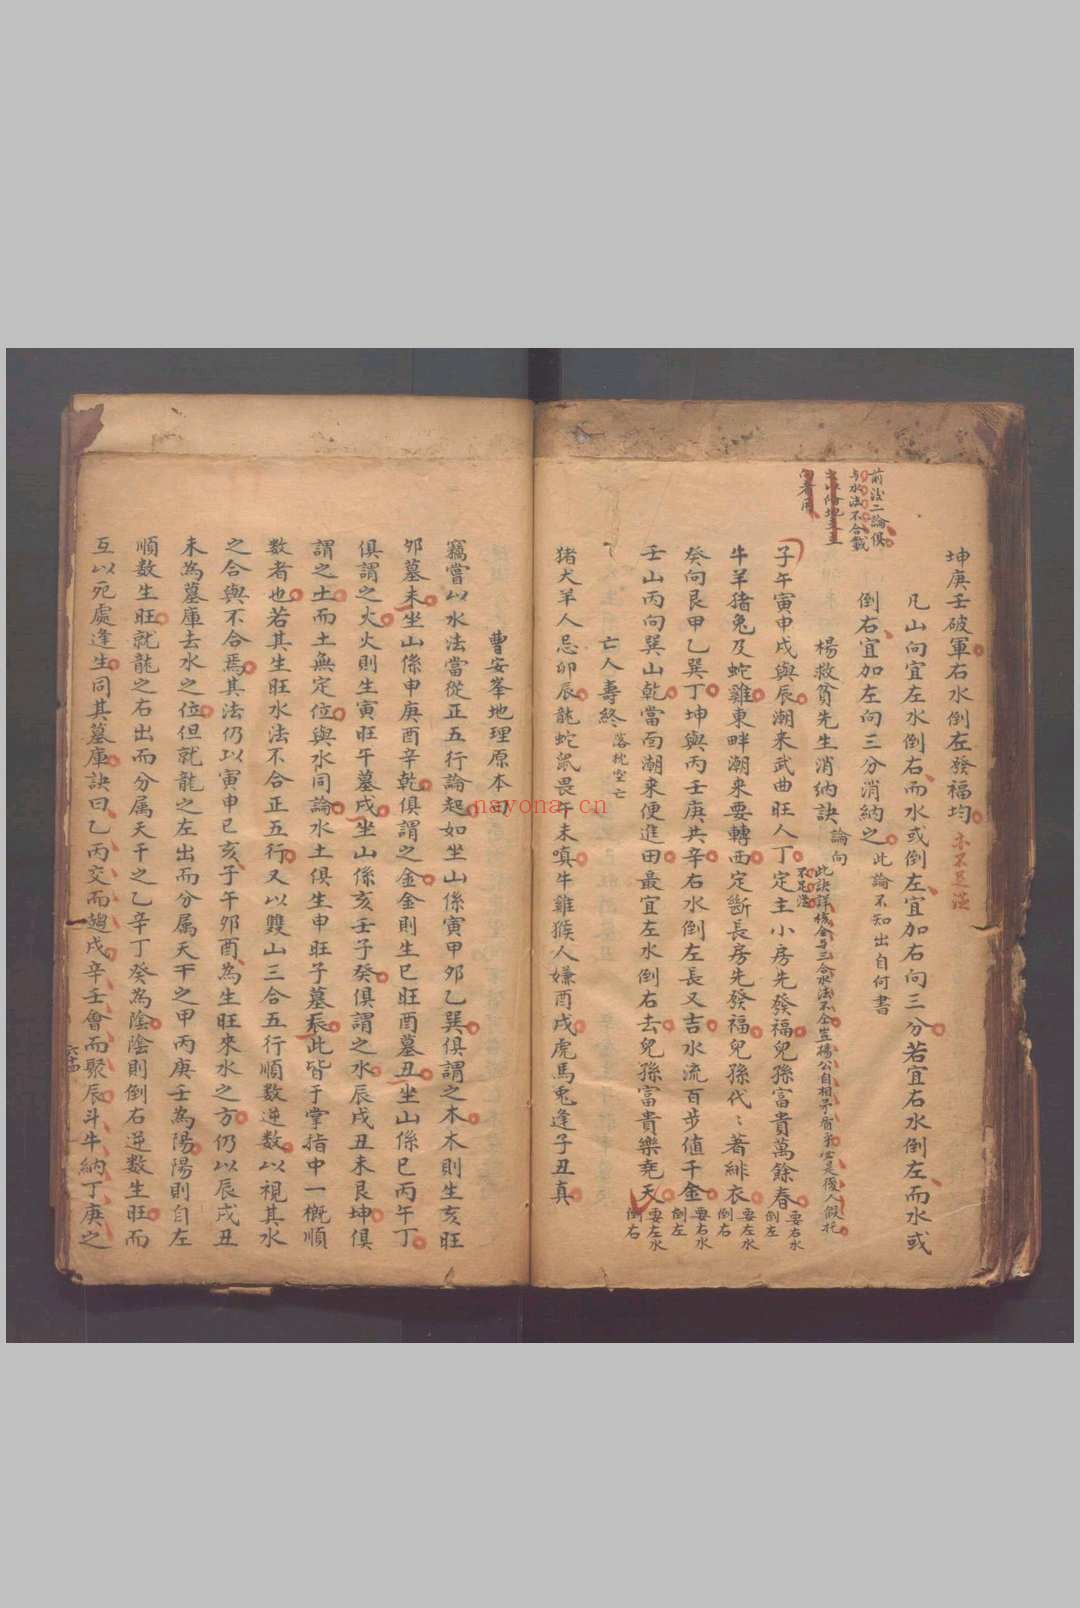 前後二論俱
与水法不合載
坤庚壬破軍右水倒左發福均
凡山向宜左水倒右而水或倒左宜加右向三分若宜右水倒左而水或
倒右宜加左向三分消納之此論不知出自何書
楊救貧先生消納訣論向
子午寅申戌與辰潮来武曲旺人丁定主小房先發福兒孫富貴萬餘春要右水倒左
牛羊猪兔及蛇雞東畔潮来要轉西定斷長房先發福兒孫代〻著緋衣要左水倒右
癸向艮甲乙巽丁坤與丙壬庚共辛右水倒左長又吉水流百步值千金要右水倒左
壬山丙向巽山乾當面潮来便進田最宜左水倒右去兒孫富貴樂堯天要左水倒右
亡人壽終落枕空亡
猪犬羊人忌卯辰龍蛇鼠畏午未嗔牛雞猴人嫌酉戌虎馬兔逢子丑真
曹安峯地理原本曰
竊嘗以水法當從正五行論起如坐山係寅甲卯乙巽俱謂之木木則生亥旺
卯墓未坐山係申庚酉辛乾俱謂之金金則生巳旺酉墓丑坐山係巳丙午丁
俱謂之火火則生寅旺午墓戌坐山係亥壬子癸俱謂之水辰戌丑未艮坤俱
謂之土而土無定位與水同論水土俱生申旺子墓辰此皆于掌指中一槪順
数者也若其生旺水法不合正五行又以雙山三合五行順数逆数以視其水
之合與不合焉其法仍以寅申巳亥子午卯酉為生旺來水之方仍以辰戌丑
未為墓庫去水之位但就龍之左出而分属天干之甲丙庚壬為陽陽則自左
順数生旺就龍之右出而分属天干之乙辛丁癸為陰陰則倒右逆数生旺而
互以死處逢生同其墓庫訣曰乙丙交而趨戌辛壬會而聚辰斗牛納丁庚之
六十四
nayona.cn